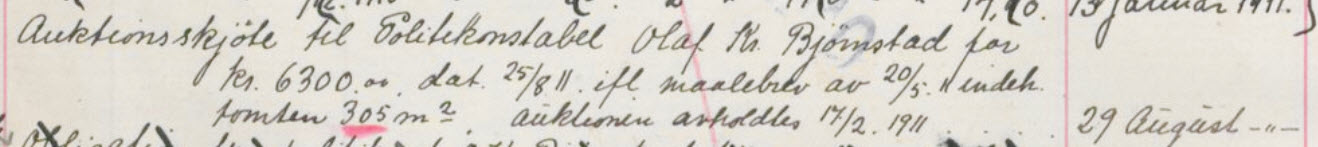 13 januar 1911.
Auktionsskjöte til Politikonstabel Olaf Kr. Björnstad for
kr. 6300.00. dat. 25/8 11. ifl maalebrev av 20/5. 11 indeh.
tomten 305 m2. auktionen avholdtes 17/2. 1911 . . . . 29 August -"-